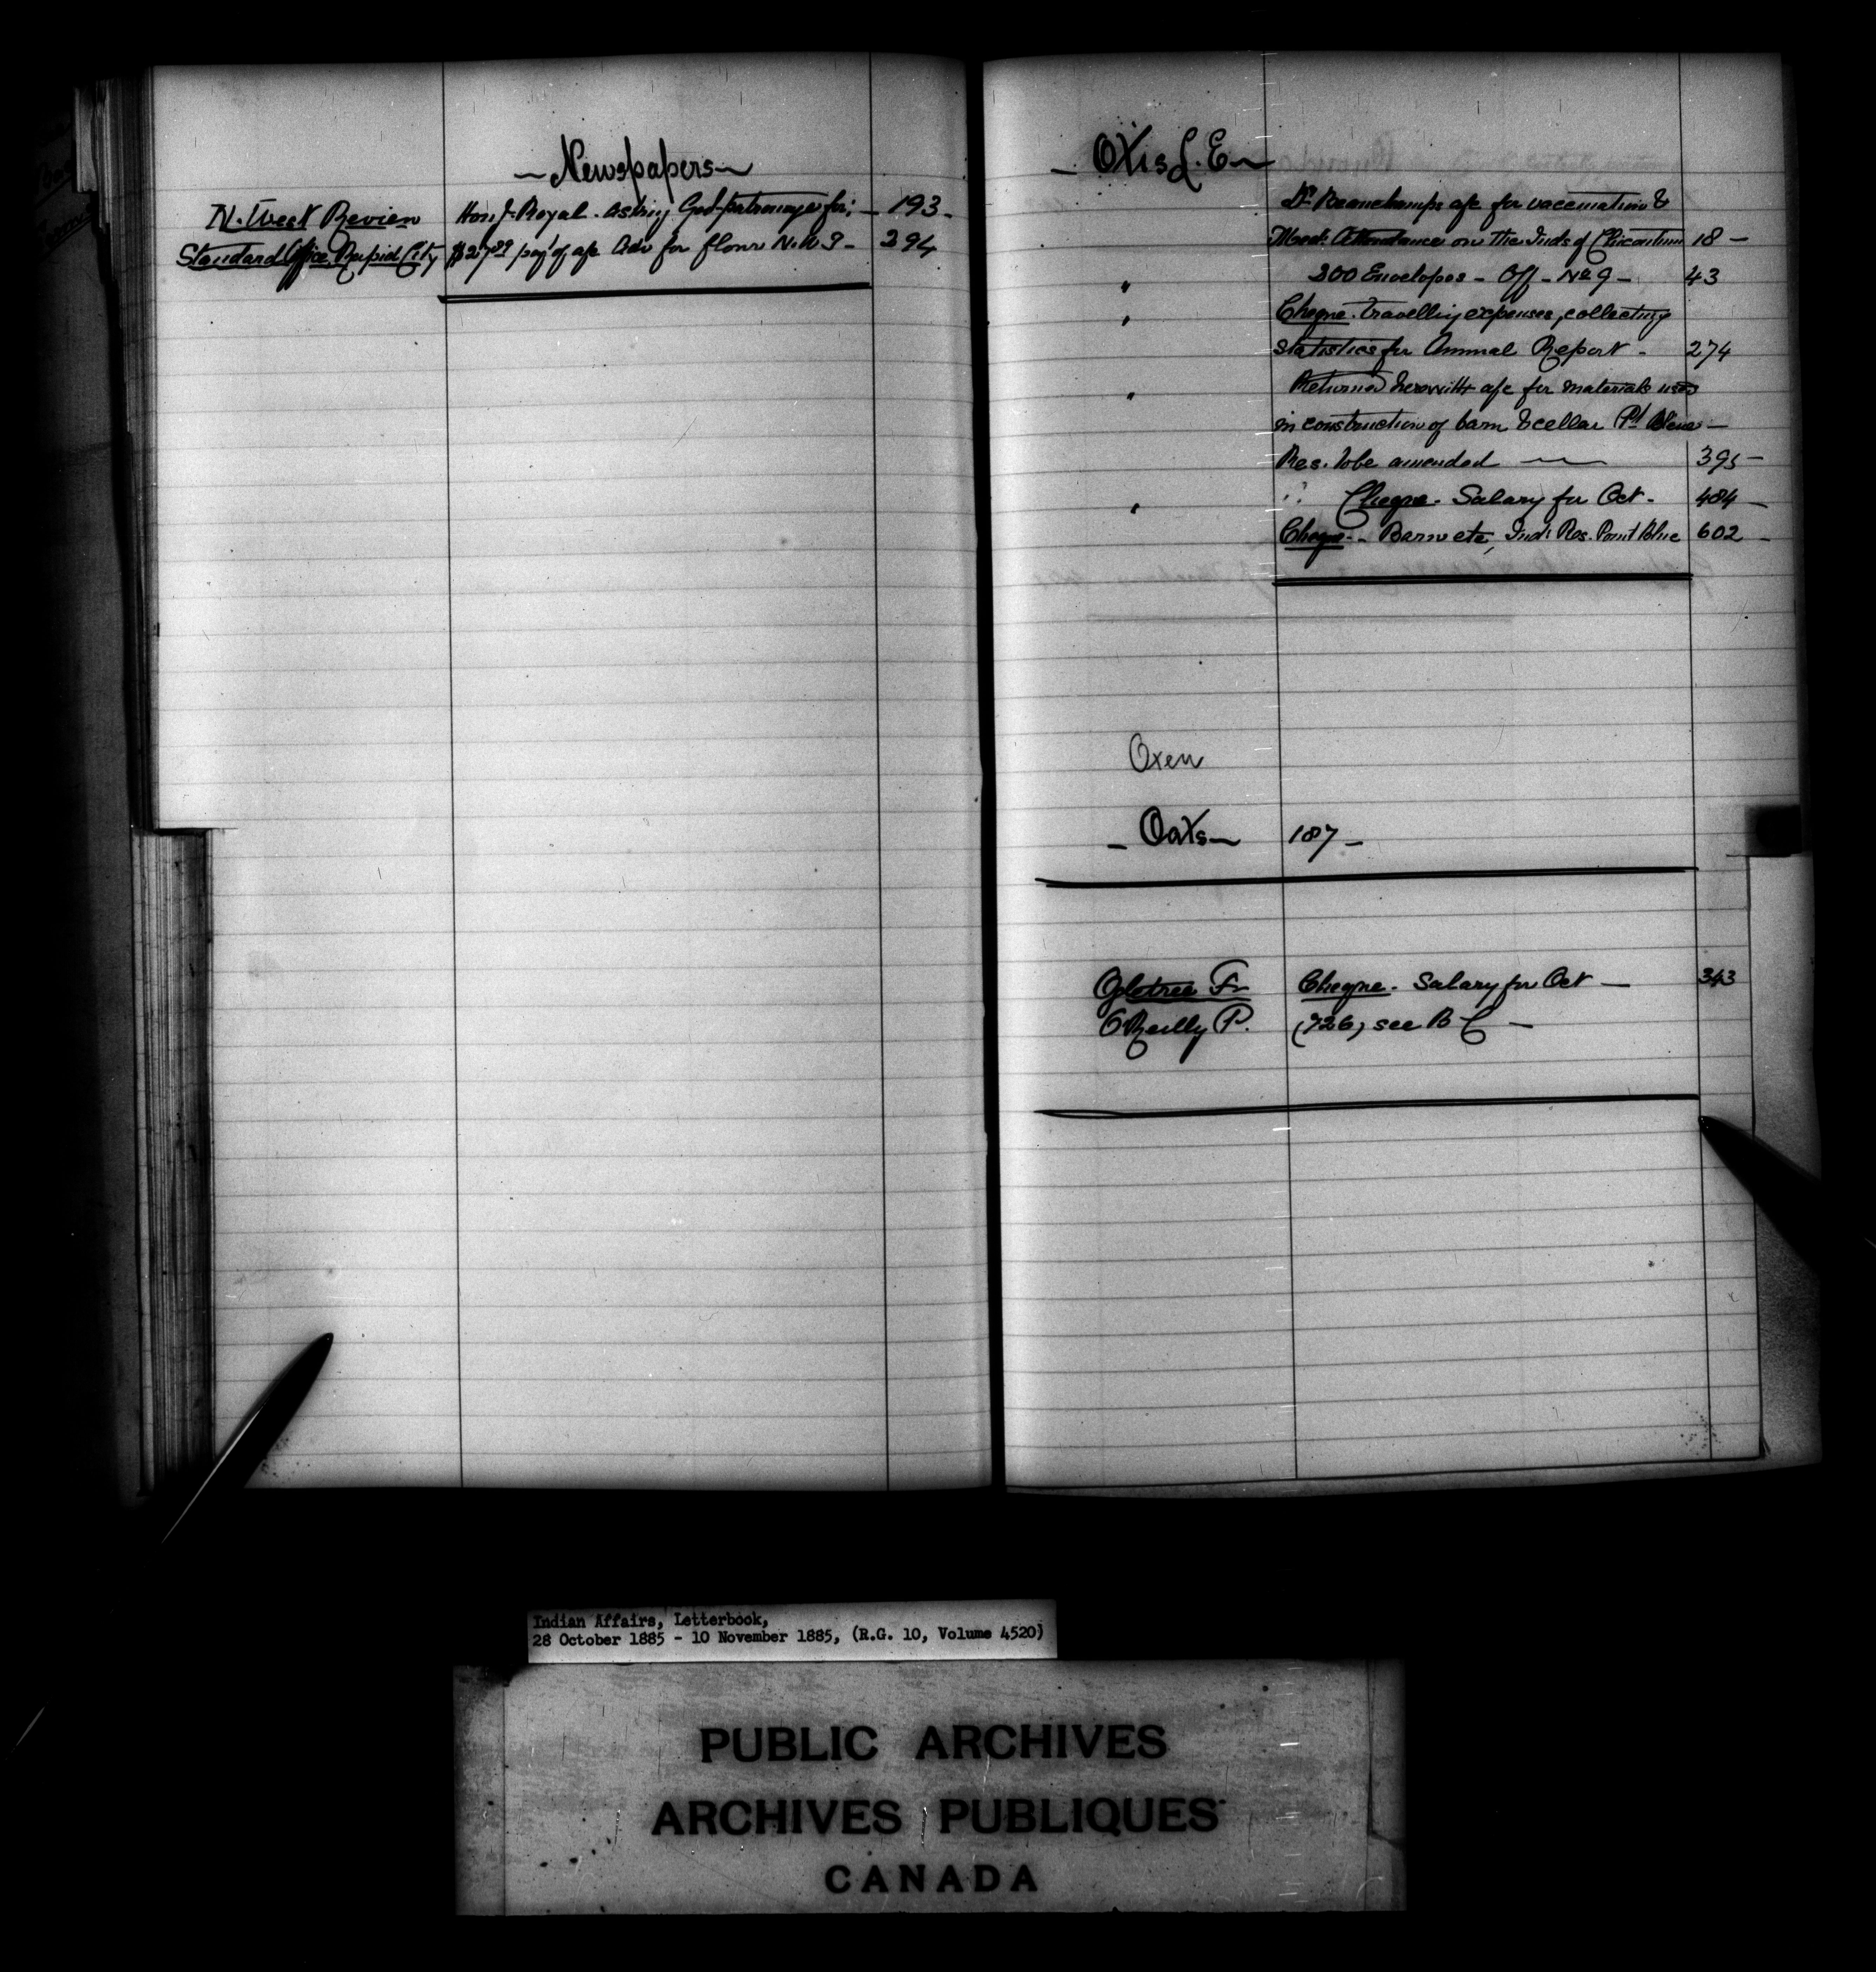 ~ Newspapers ~
N. West Review Hon J. Royal. asking Gov-patronage for; - 193 -
Standard Office, Rapid City $27.29 pay't of a/c Adv for flour N.W.T - 294
- Otis L. E ~
Dr Beauchamps a/c for vaccination &
Med: Attendance on the Inds of Chicoutimi 18 -
" 200 Envelopes - Off - No 9 - 43
" Cheque. travelling expenses, collecting
statistics for Annual Report - 274
" Returned herewith a/c for materials used
in construction of barn & cellar Pt Bleue -
Res. to be amended 395 -
" " Cheque. Salary for Oct. 484 -
Cheque - Barn etc, Ind: Res. Point Blue 602 -
Oxen
- Oats - 187 -
Ogletree F. Cheque. Salary for Oct - 343
O'Reilly P. (726) see B C -
Indian Affairs, Letterbook,
28 October 1885 - 10 November 1885, (R.G. 10, Volume 4520)
PUBLIC ARCHIVES
ARCHIVES PUBLIQUES
CANADA